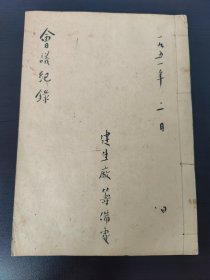 一九五一年 二月
建生廠籌備處
會議紀錄